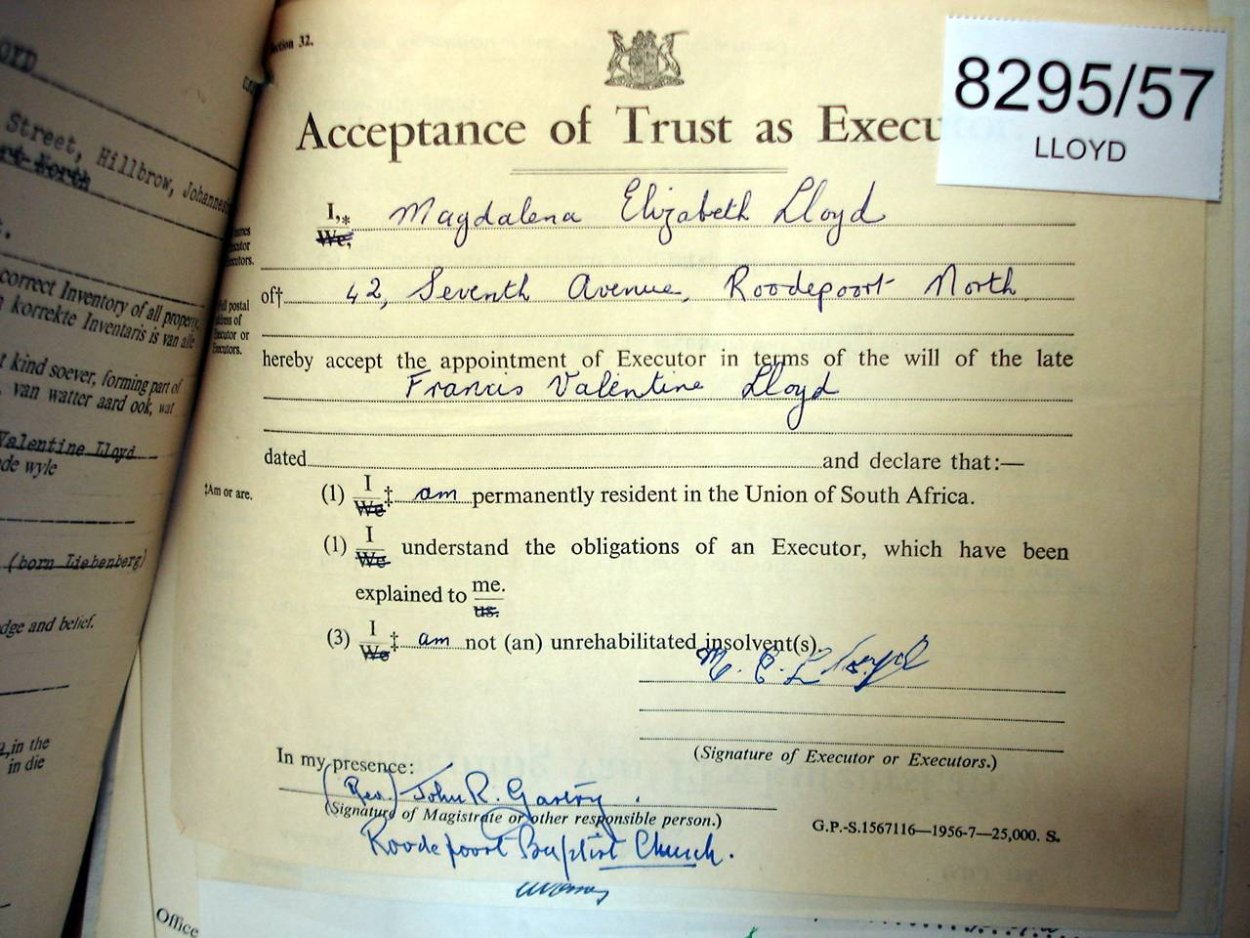 OYD
Street, Hillbrow, Johannes
correct Inventory of all property,
korrekte Inventaris is van alle
t kind soever, forming part of
van watter aard ook, wat
Valentine Lloyd
de wyle
(born Liebenberg)
dge and belief.
in the
in die
Office
8295/57
LLOYD
ction 32.
Acceptance of Trust as Execu
I,* Magdalena Elizabeth Lloyd
We,
ecutors.
of† 42, Seventh Avenue, Roodepoort North
ll postal
dress of
ecutor or
Executors.
hereby accept the appointment of Executor in terms of the will of the late
Francis Valentine Lloyd
dated and declare that:—
‡Am or are.
(1) I
We ‡ am permanently resident in the Union of South Africa.
(1) I
We understand the obligations of an Executor, which have been
explained to me.
us.
(3) I
We ‡ am not (an) unrehabilitated insolvent(s).
M. E. Lloyd
(Signature of Executor or Executors.)
In my presence:
(Rev.) John R.
(Signature of Magistrate or other responsible person.)
Roodepoort Baptist Church.
G.P.-S.1567116—1956-7—25,000. S.